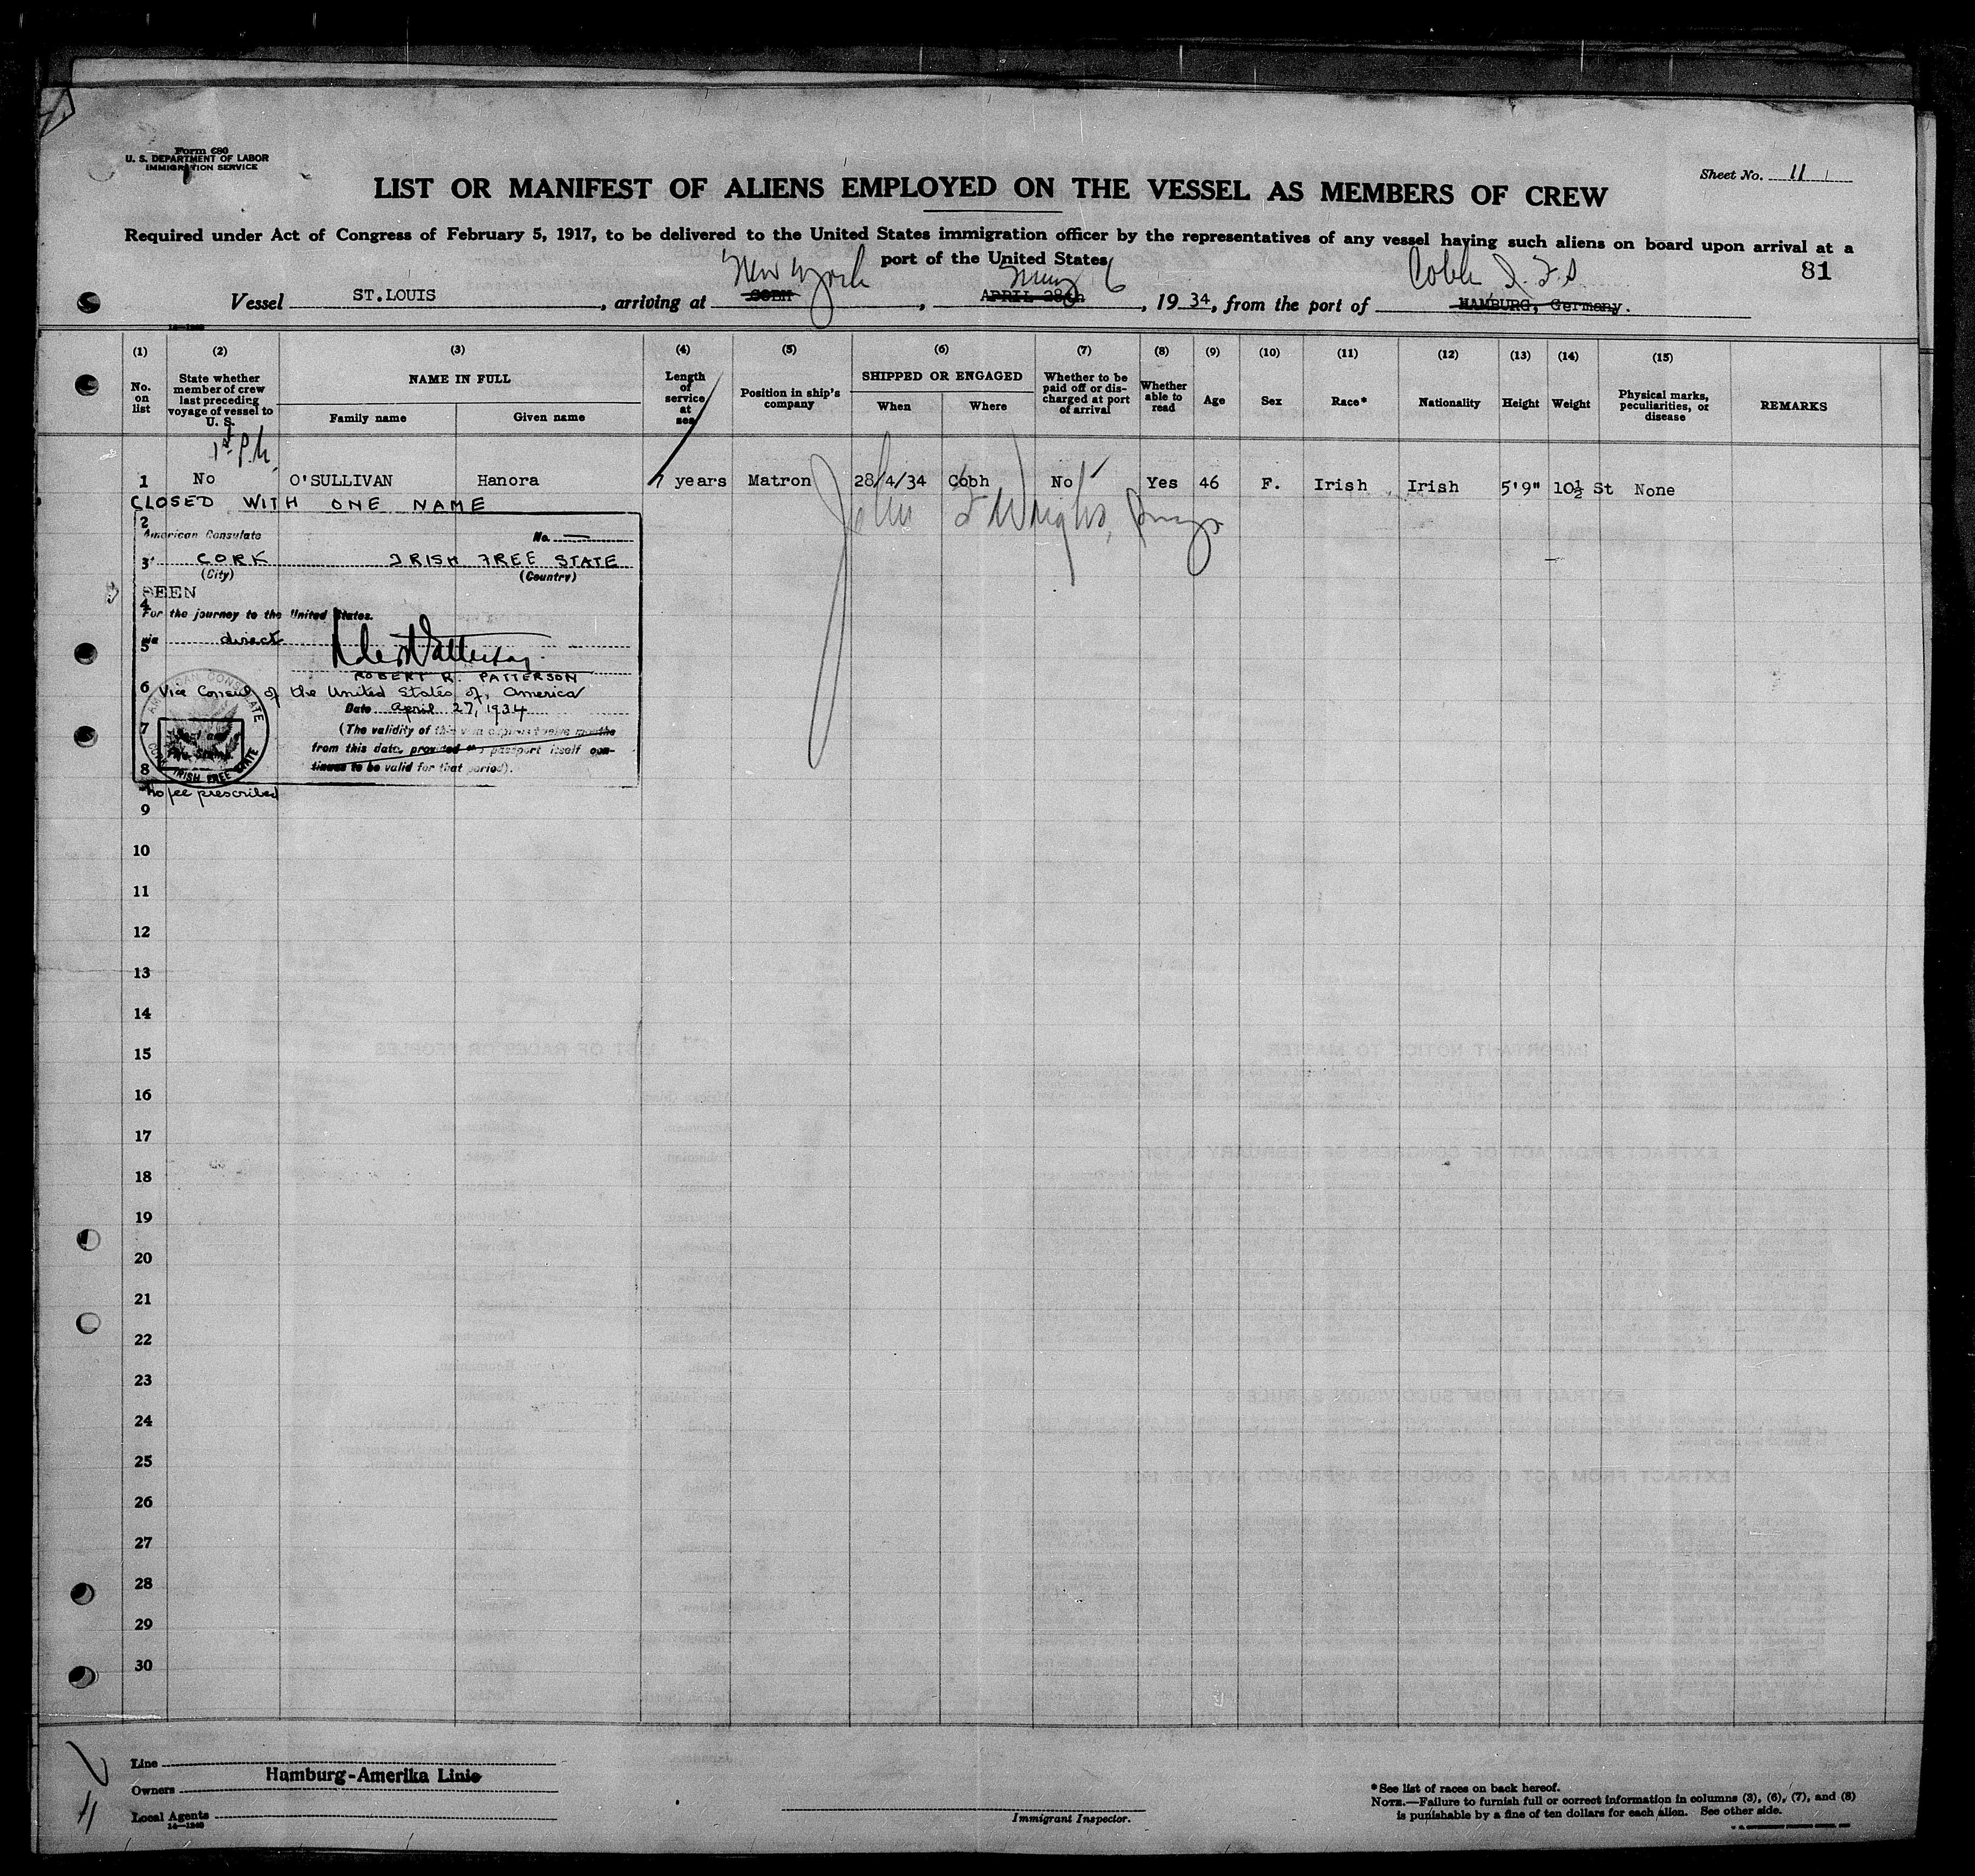 Form 680
U. S. DEPARTMENT OF LABOR
IMMIGRATION SERVICE
Sheet No. 11
LIST OR MANIFEST OF ALIENS EMPLOYED ON THE VESSEL AS MEMBERS OF CREW
Required under Act of Congress of February 5, 1917, to be delivered to the United States immigration officer by the representatives of any vessel having such aliens on board upon arrival at a
port of the United States
81
New York May 6 Cobh I.F.S
Vessel ST.LOUIS, arriving at COBH, APRIL 28th, 1934, from the port of HAMBURG, Germany.
(1) (2) (3) (4) (5) (6) (7) (8) (9) (10) (11) (12) (13) (14) (15)
No. on list
State whether member of crew last preceding voyage of vessel to U. S.
NAME IN FULL
Family name
Given name
Length of service at sea
Position in ship's company
SHIPPED OR ENGAGED
When
Where
Whether to be paid off or discharged at port of arrival
Whether able to read
Age
Sex
Race*
Nationality
Height
Weight
Physical marks, peculiarities, or disease
REMARKS
1 No O'SULLIVAN Hanora 7 years Matron 28/4/34 Cobh No Yes 46 F. Irish Irish 5'9" 10½ St None
CLOSED WITH ONE NAME
John
2
American Consulate No. —
3 CORK IRISH FREE STATE
(City) (Country)
SEEN
4
For the journey to the United States.
5 via direct
ROBERT R. PATTERSON
6 Vice Consul of the United States of America
Date April 27, 1934
7 (The validity of this visa expires twelve months
from this date, provided the passport itself con-
8 tinues to be valid for that period).
AMERICAN CONSULATE
CORK IRISH FREE STATE
No fee prescribed
9
10
11
12
13
14
15
16
17
18
19
20
21
22
23
24
25
26
27
28
29
30
Line
Hamburg-Amerika Linie
Owners
Local Agents
14—1240
Immigrant Inspector.
*See list of races on back hereof.
NOTE.—Failure to furnish full or correct information in columns (3), (6), (7), and (8)
is punishable by a fine of ten dollars for each alien. See other side.